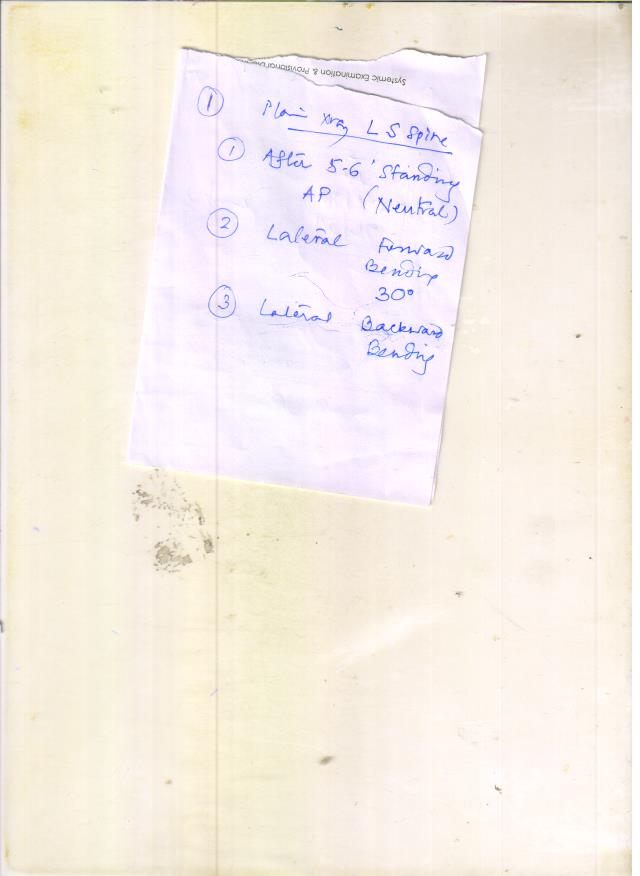 Systemic Examination & Provisional
① Plain xray L S Spine
① After 5-6' Standing
AP (Neutral)
② Lateral Forward
Bending
30°
③ Lateral Backward
Bending